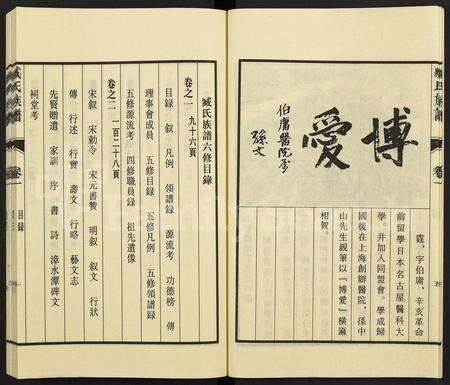 博愛
伯庸醫院屬
孫文
霆，字伯庸，辛亥革命
前留學日本名古屋醫科大
學，并加入同盟會。學成歸
國後在上海創辦醫院，孫中
山先生親筆以「博愛」橫匾
相賀。
臧氏族譜六修目錄
卷之一　九十六頁
目録　叙　凡例　領譜録　源流考　功德榜　傳
理事會成員　五修目録　五修凡例　五修領譜録
五修源流考　四修職員録　祖先遺像
卷之二　一百二十八頁
宋叙　宋勅令　宋元書贊　明叙　叙文　行狀
傳　行述　行實　壽文　行略　藝文志
先賢贈遺　家訓　序　書　詩　漳水潭碑文
祠堂考
臧氏族譜
卷一
目録